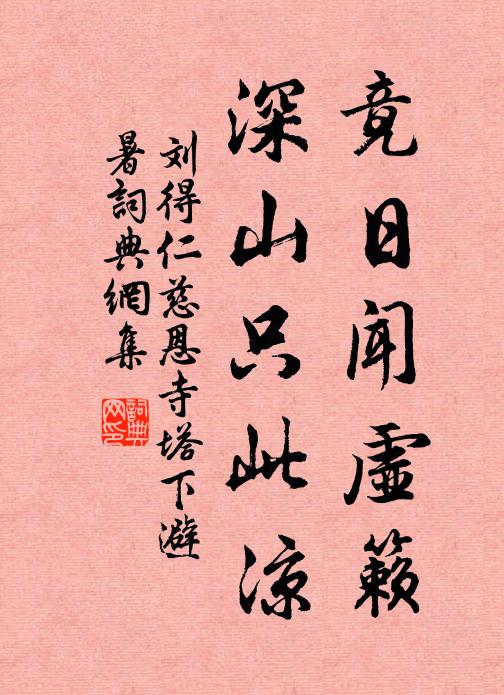 竟日闻虚籁
深山只此凉
刘得仁慈恩寺塔下避
暑词典網集
詞典
网印